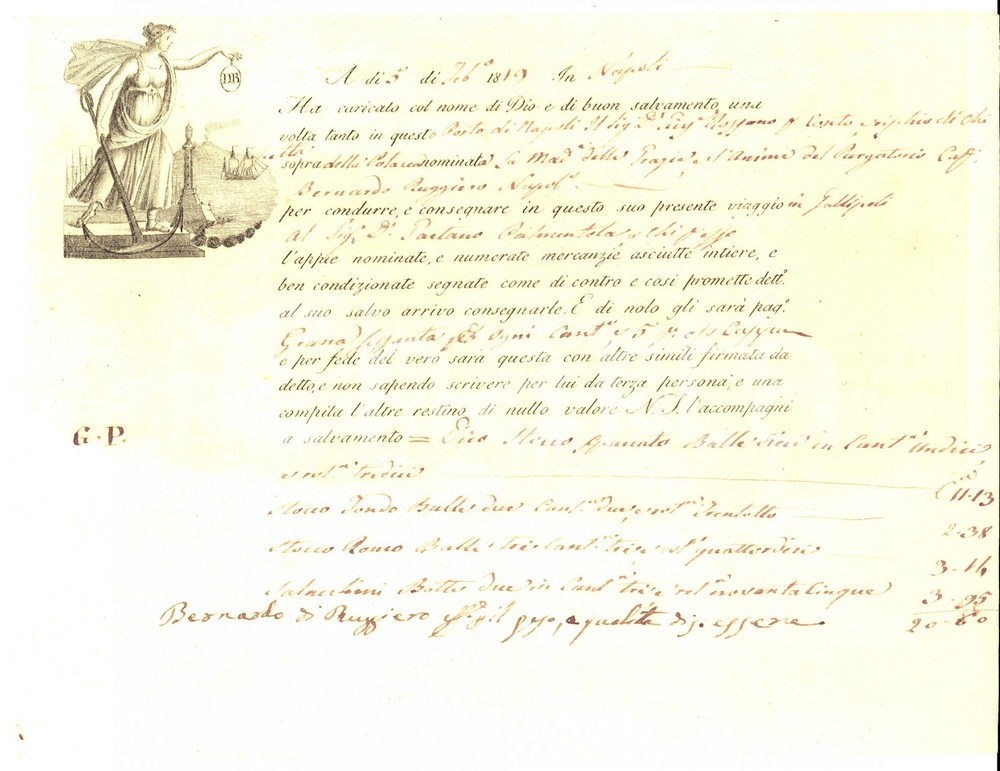 DB
A di 5 di Feb.º 1819 In Napoli
Ha caricato col nome di Dio e di buon salvamento una
volta tanto in questo Porto di Napoli Il Sig.r D.n p Conto, e risphio di chi
sopra della Polacca nominata La Mad.a delle Grazie e l'Anime del Purgatorio Cap.
Bernardo Ruggiero Napol.º
per condurre, e consegnare in questo suo presente viaggio in Gallipoli
Al Sig.r D.n Gaetano o chi p esso
l'appiè nominate, e numerate mercanzie asciutte intiere, e
ben condizionate segnate come di contro e così promette dett.º
al suo salvo arrivo consegnarle. E di nolo gli sarà pag.º
Grana sessanta ogni Cant.º e 5 p. % Cappa
e per fede del vero sarà questa con altre simili firmata da
detto, e non sapendo scrivere per lui da terza persona, e una
compita l'altre restino di nullo valore N. S. l'accompagni
G. P.
a salvamento = Stocco Balle in Cant.a Undici
e rot.a tredici 11-13
Stocco Tondo Balle due Cant.a due, e rot.a Trentotto 2-38
Stocco Balle tre Cant.a tre e rot.a quattordici 3-14
Salacchini Botte due in Cant.a tre e rot.a novantacinque 3-95
20-60
Bernardo di Ruggiero peso, e qualità essere